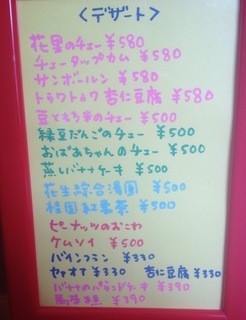 〈デザート〉
花墨のチェー ¥580
チェータップカム ¥580
サンボールン ¥580
トラウトゥウ 杏仁豆腐 ¥580
豆ともち米のチェー ¥500
緑豆だんごのチェー ¥500
おばあちゃんのチェー ¥500
蒸しバナナケーキ ¥500
花生綜合湯圓 ¥500
桂圓紅棗茶 ¥500
ピーナッツのおこわ
ケムソイ ¥500
バインフラン ¥330
ヤァオア ¥330 杏仁豆腐 ¥330
バナナのパウンドケーキ ¥390
馬拉糕 ¥390